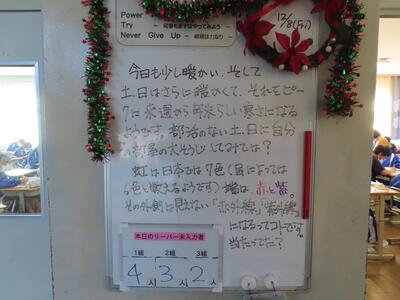 Power
Try - 何事もまずはやってみよう -
Never Give Up - 継続は力なり -
12/8(Fri)
今日も少し暖かい、そして
土日はさらに暖かくて、それをピー
クに来週から毎年らしい寒さになる
ようです。部活のない土、日に自分
の部屋の大そうじしてみては?
虹は日本では7色(国によっては
6色と教えるようです)端は、赤と紫。
その外側は見えない「赤外線」「紫外線」
になるってコトです。
当たってた?
本日のリーバー未入力者
1組 2組 3組
4人 3人 2人